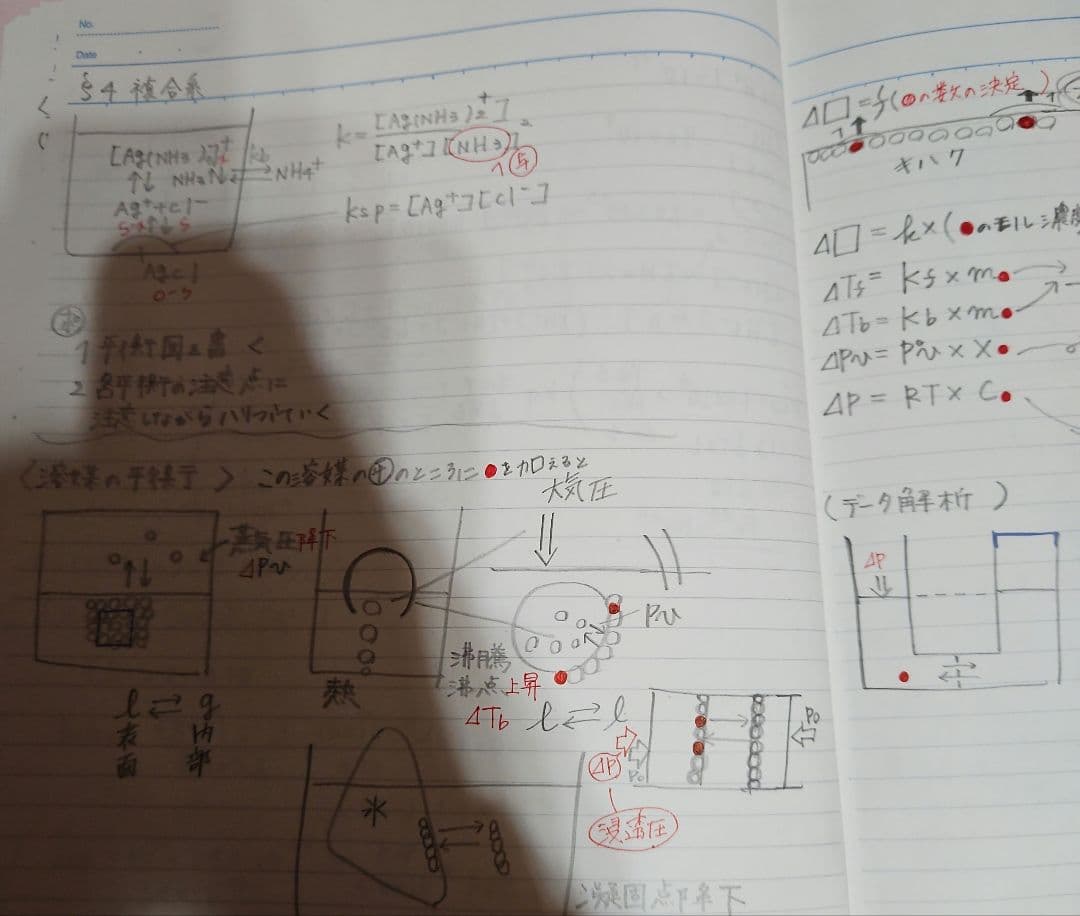 No.
Date
§4 複合系
[Ag(NH3)2]+
NH3 ⇅ kb ⇄ NH4+
Ag+ + Cl-
S
AgCl
k = [Ag(NH3)2+] / [Ag+][NH3]2
ksp = [Ag+][Cl-]
1 平衡図を書く
2 各平衡の注意点に
注意しながら
〈溶媒の平衡〉 この溶媒の⊕のところに●を加えると
大気圧
蒸気圧降下
ΔPv
Pv
沸騰
沸点上昇
ΔTb
熱
l ⇄ g
表面 内部
l ⇄ l
ΔP
P0
P0
浸透圧
氷
凝固点降下
Δ□ = f(●の数の決定)
キハク
Δ□ = k × (●のモル濃度
ΔTf = kf × m●
ΔTb = kb × m●
ΔPv = P°v × X●
ΔP = RT × C●
(データ解析)
ΔP